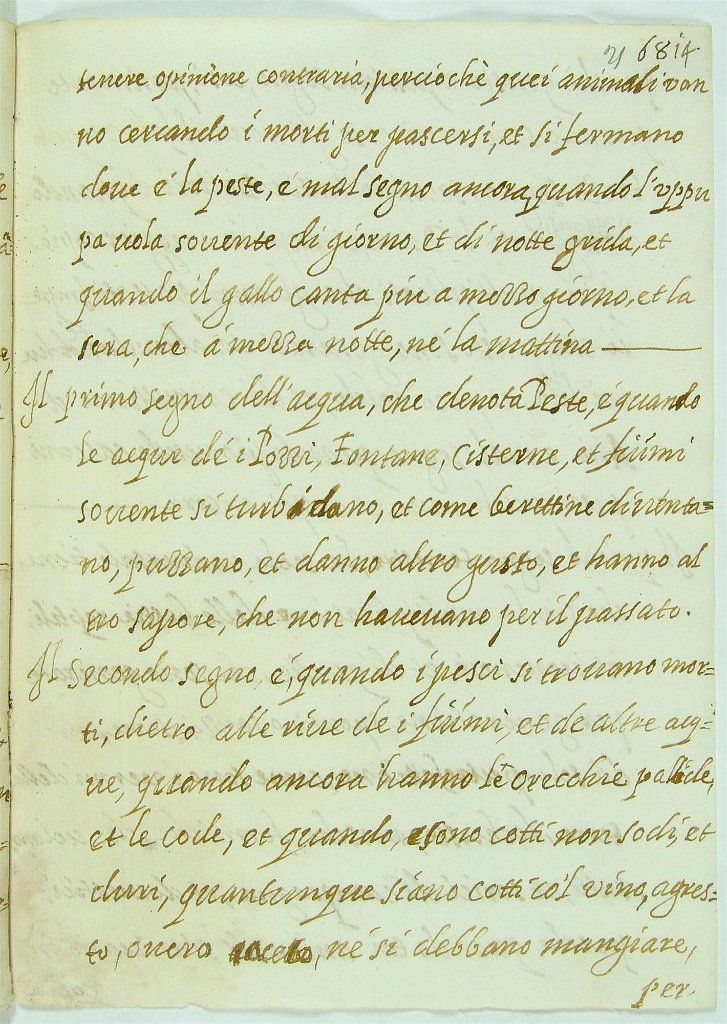 21 6814
tenere opinione contraria, perciochè quei animali van
no cercando i morti per pascersi, et si fermano
doue é la peste, é mal segno ancora, quando l'uppu
pa uola souente di giorno, et di notte grida, et
quando il gallo canta piu a mezzo giorno, et la
sera, che á mezza notte, né la mattina
Il primo segno dell'acqua, che denota Peste, é quando
le acque dé i Pozzi, Fontane, Cisterne, et fiumi
souente si turbidano, et come berettine diuenta=
no, puzzano, et danno altro gusto, et hanno al
tro sapore, che non haueuano per il passato.
Il secondo segno é, quando i pesci si trouano mor=
ti, dietro alle riue de i fiumi, et de altre acq=
ue, quando ancora hanno le orecchie pallide,
et le code, et quando, sono cotti non sodi, et
duri, quantunque siano cotti col vino, agres=
to, ouero aceto, né si debbano mangiare,
per